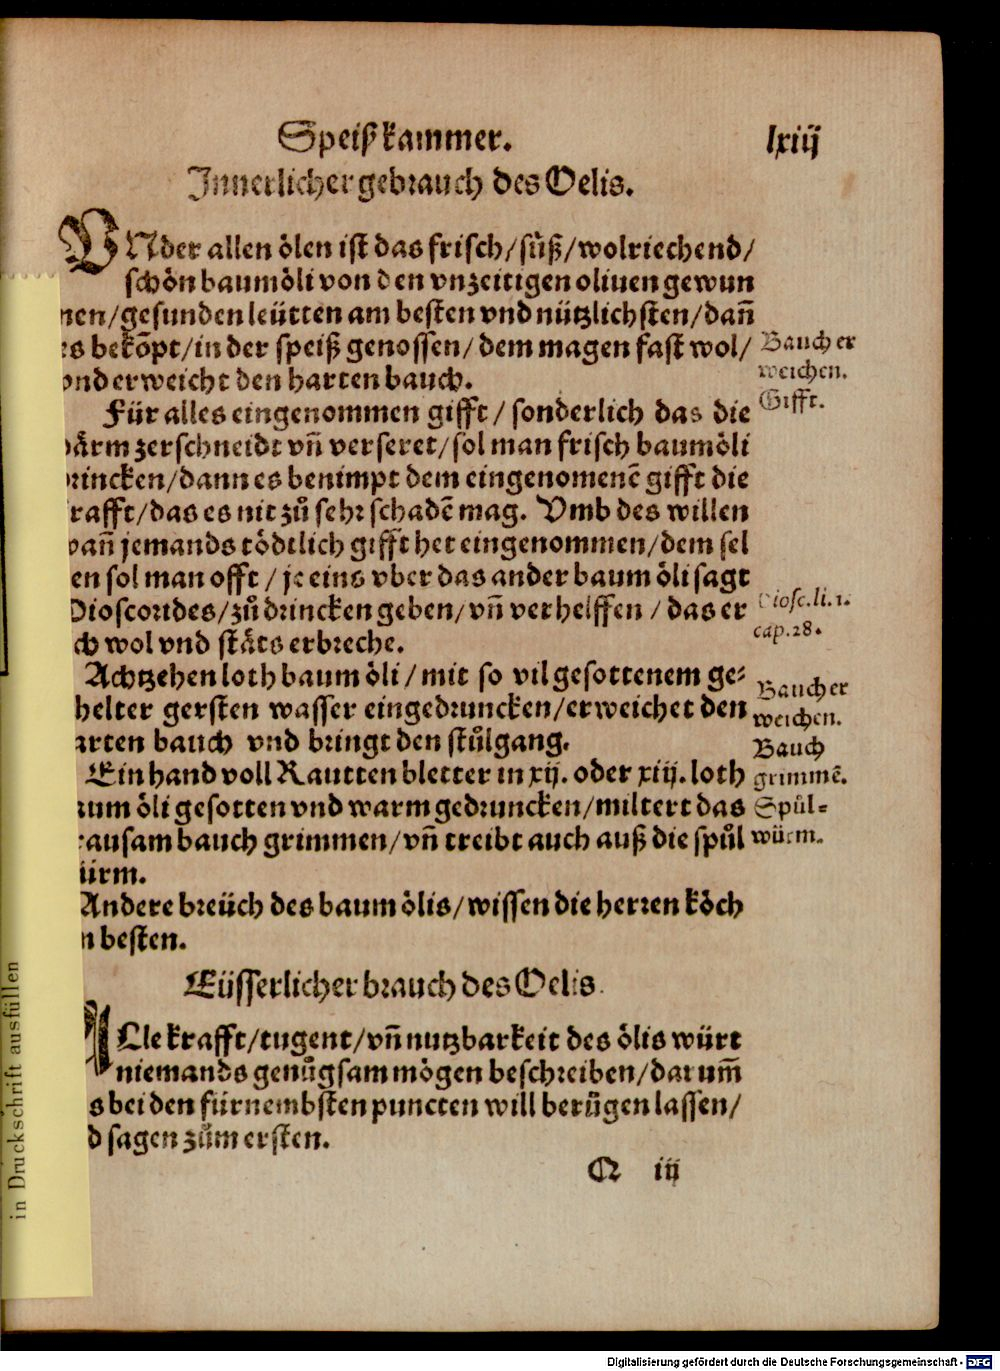 Speiß kammer. lxiij
Innerlicher gebrauch des Oelis.
VNder allen ölen ist das frisch/süß/wolriechend/
schön baumöli von den vnzeitigen oliuen gewun
nen/gesunden leütten am besten vnd nützlichsten/dañ
es bekõpt/in der speiß genossen/dem magen fast wol/
vnd erweicht den harten bauch.
Baucher
weichen.
Für alles eingenommen gifft/sonderlich das die
därm zerschneidt vñ verseret/sol man frisch baumöli
trincken/dann es benimpt dem eingenomenẽ gifft die
krafft/das es nit zů sehr schadẽ mag. Vmb des willen
wañ jemands tödtlich gifft het eingenommen/dem sel
en sol man offt/je eins vber das ander baum öli sagt
Dioscorides/zů drincken geben/vñ verhelffen/das er
ch wol vnd stäts erbreche.
Gifft.
Diosc.li.1.
cap.28.
Achtzehen loth baum öli/mit so vil gesottenem ge-
helter gersten wasser eingedruncken/erweichet den
arten bauch vnd bringt den stůlgang.
Baucher
weichen.
Ein hand voll Rautten bletter in xij. oder xiij. loth
aum öli gesotten vnd warm gedruncken/miltert das
rausam bauch grimmen/vñ treibt auch auß die spůl
ürm.
Bauch
grimmẽ.
Spůl-
würm.
Andere breüch des baum ölis/wissen die herren köch
m besten.
Eüsserlicher brauch des Oelis.
ALle krafft/tugent/vñ nutzbarkeit des ölis würt
niemands genůgsam mögen beschreiben/darumm̃
s bei den fürnembsten puncten will berůgen lassen/
d sagen zům ersten.
Q iij
in Druckschrift ausfüllen
Digitalisierung gefördert durch die Deutsche Forschungsgemeinschaft - DFG